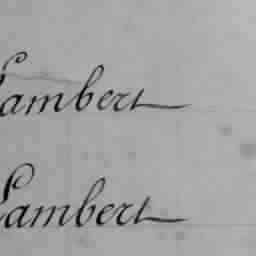 Lambert
Lambert